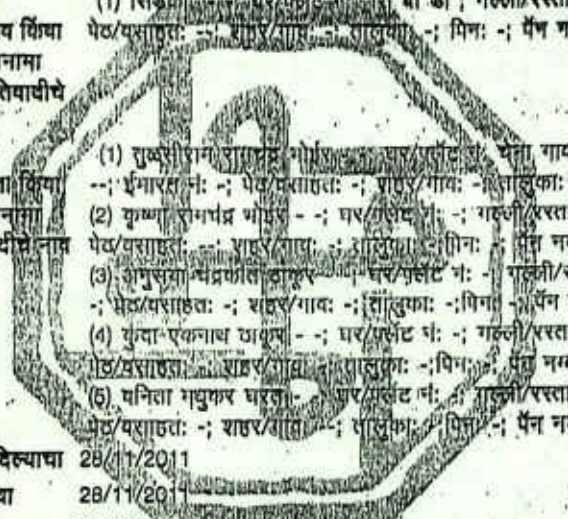 (1) सिडको
व किंवा पेठ/वसाहत: --; शहर/गाव: -; तालुका: -; पिन: -; पॅन न
नामा
तिवादीचे
(1) तुळसीराम रामचंद्र भोईर - -; घर/फ्लॅट नं: गाव
ता किंवा --; ईमारत नं: -; पेठ/वसाहत: -; शहर/गाव: -; तालुका:
नामा (2) कृष्णा रामचंद्र भोईर - -; घर/फ्लॅट नं: -; गल्ली/रस्ता
दीचे नाव पेठ/वसाहत: --; शहर/गाव: -; तालुका: -;पिन: -; पॅन नम
(3) अनुसया चंद्रकांत ठाकूर - -; घर/फ्लॅट नं: -; गल्ली/र
-; पेठ/वसाहत: -; शहर/गाव: -; तालुका: -;पिन: -; पॅन
(4) कुंदा एकनाथ ठाकूर - -; घर/फ्लॅट नं: -; गल्ली/रस्ता
पेठ/वसाहत: -; शहर/गाव: -; तालुका: -;पिन: -; पॅन नम्ब
(5) वनिता मधुकर घरत - -; घर/फ्लॅट नं: -; गल्ली/रस्ता
पेठ/वसाहत: -; शहर/गाव: -; तालुका: -;पिन: -; पॅन नम
दिल्याचा 28/11/2011
चा 28/11/2011